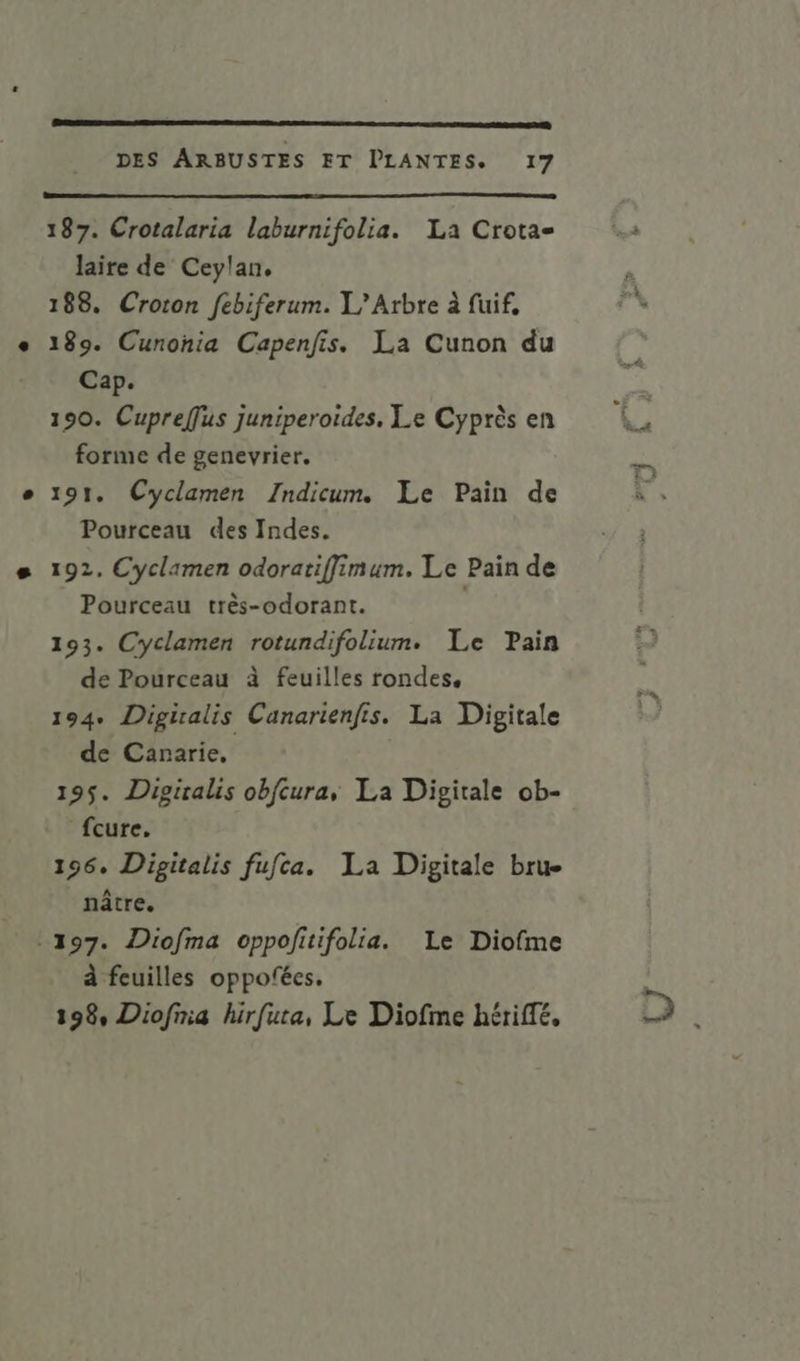 DES ARBUSTES ET PLANTES. 17
187. Crotalaria laburnifolia. La Crota-
laire de Ceylan.
188. Croton ſebiferum. L'Arbre à ſuif.
189. Cunonia Capenſis. La Cunon du
Cap.
190. Cupreſſus juniperoides. Le Cyprès en
forme de genevrier.
191. Cyclamen Indicum. Le Pain de
Pourceau des Indes.
192. Cyclamen odoratiſſimum. Le Pain de
Pourceau très-odorant.
193. Cyclamen rotundifolium. Le Pain
de Pourceau à feuilles rondes.
194. Digitalis Canarienſis. La Digitale
de Canarie.
195. Digitalis obſcura, La Digitale ob-
ſcure.
196. Digitalis fuſca. La Digitale bru-
nâtre.
197. Dioſma oppoſitifolia. Le Dioſme
à feuilles oppoſées.
198, Dioſma hirſuta, Le Dioſme hériſſé,